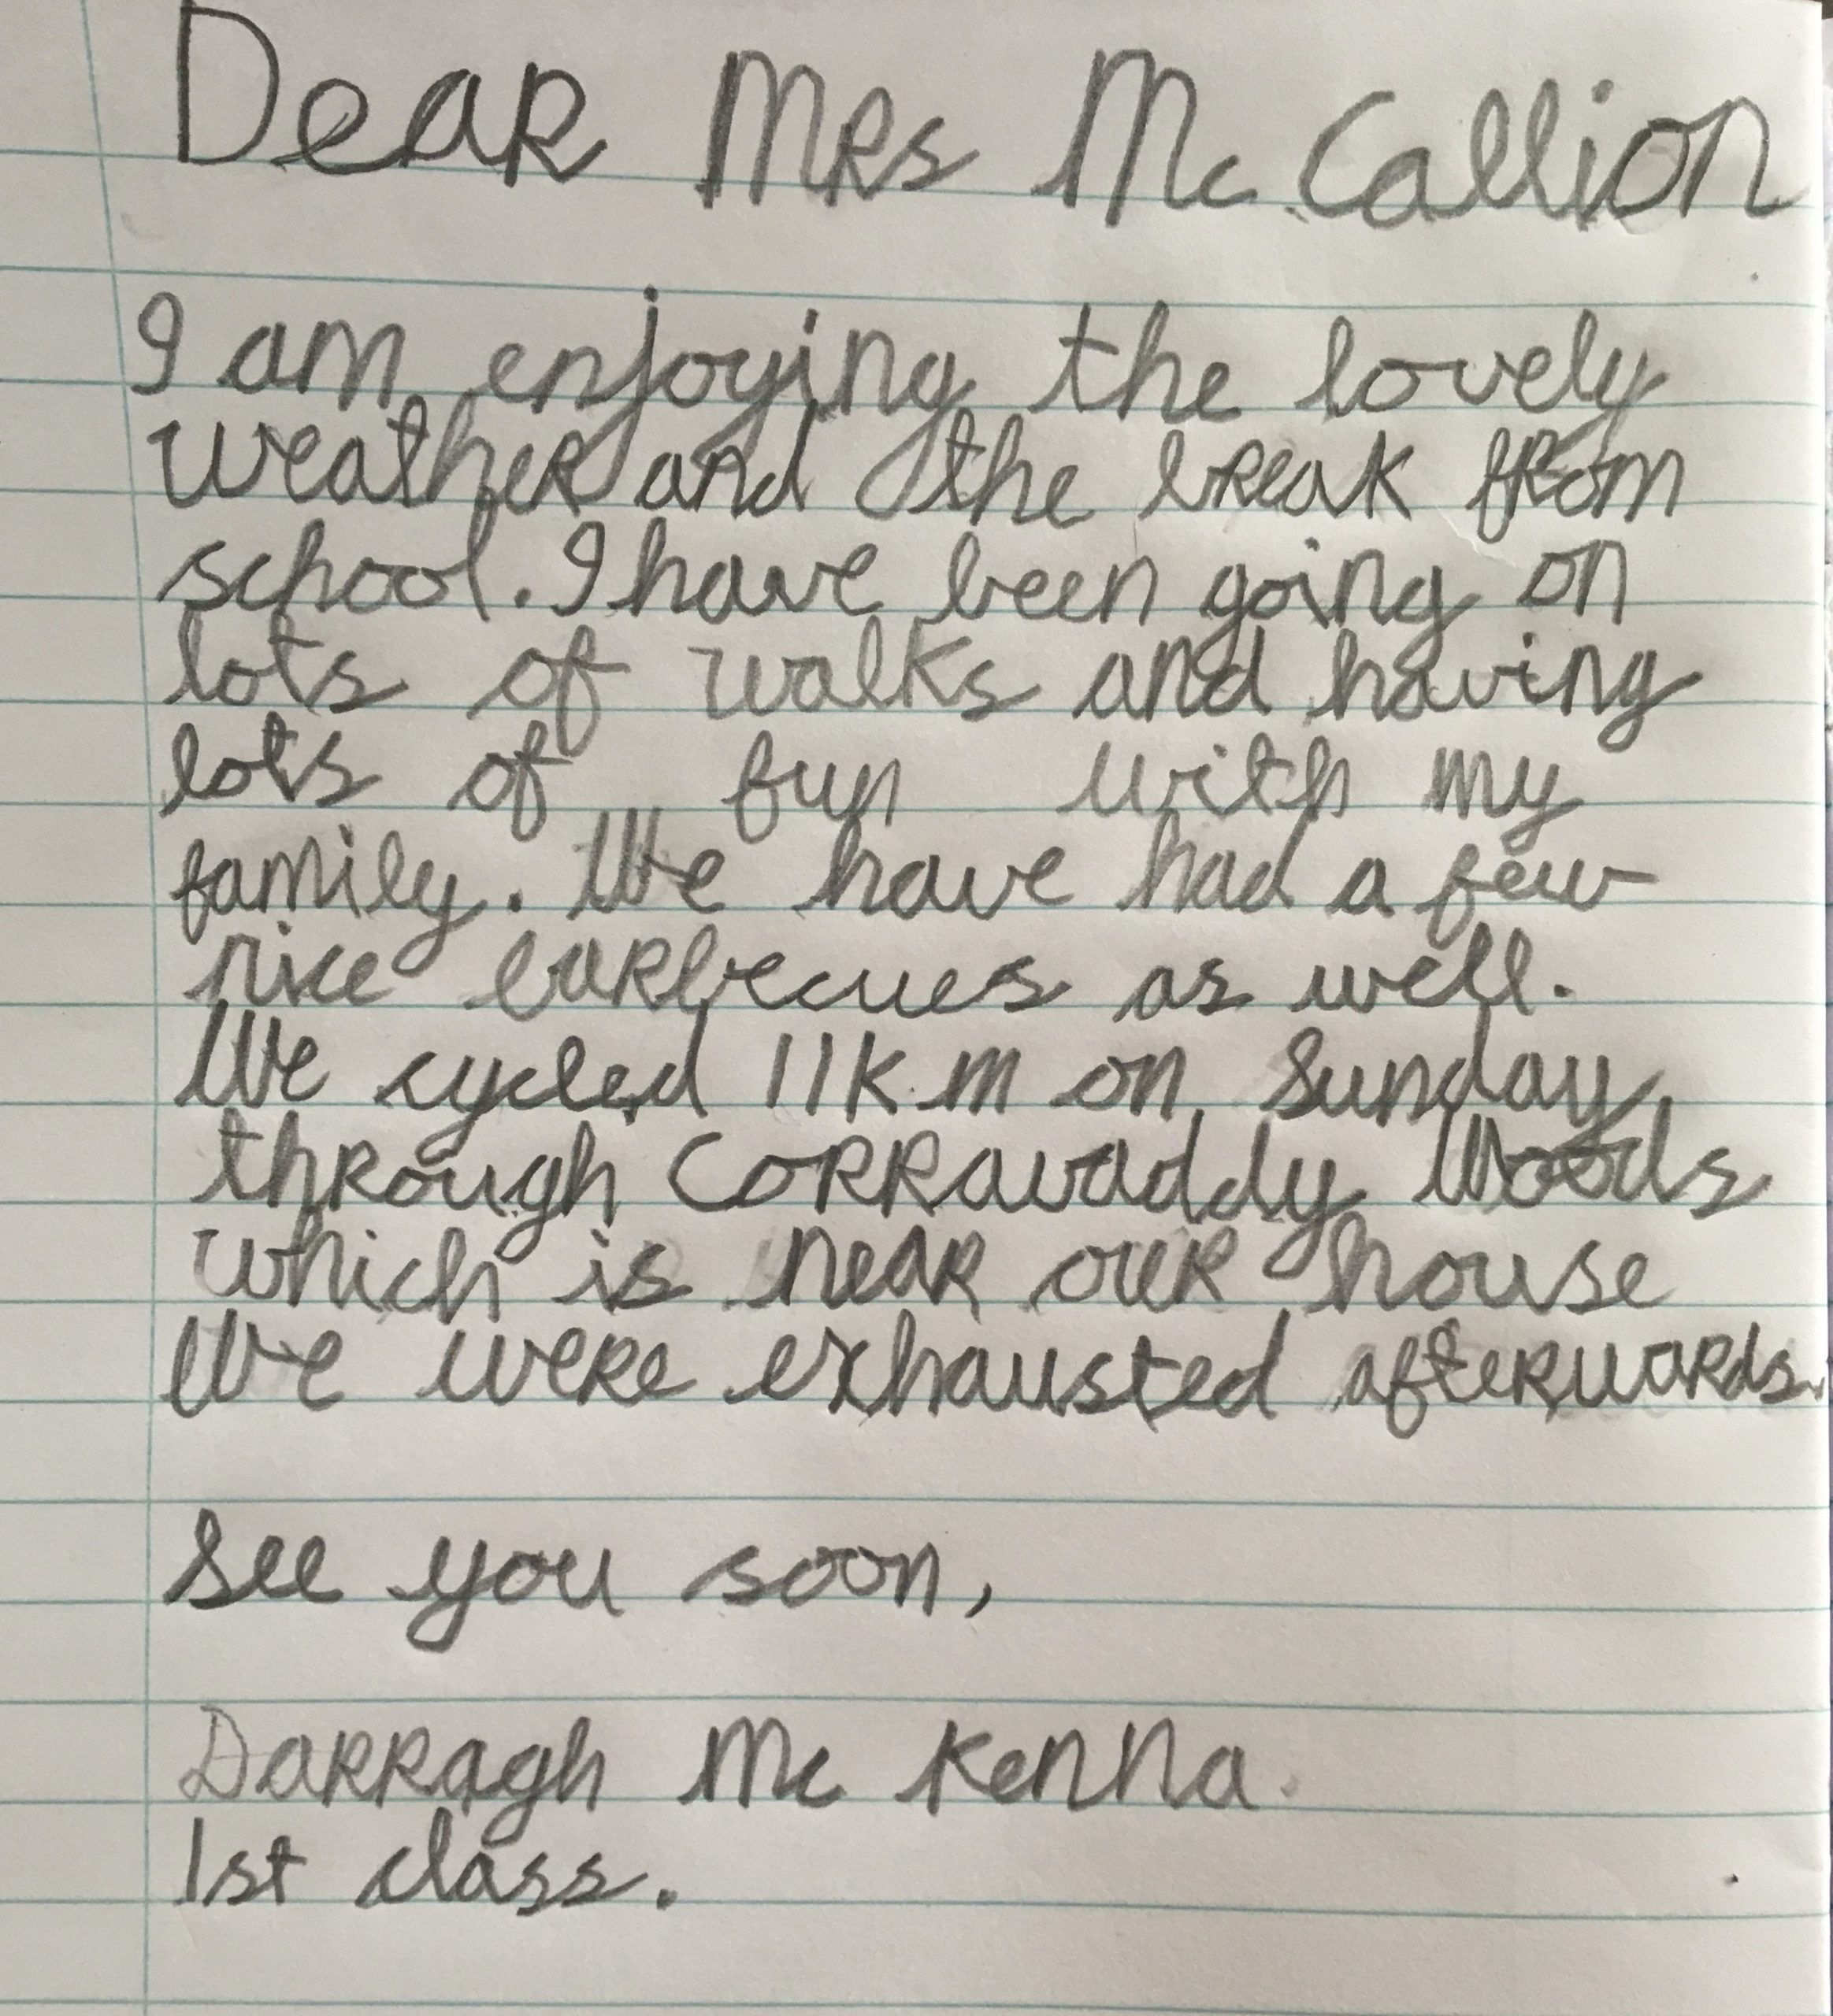 Dear Mrs Mc Callion
I am enjoying the lovely
weather and the break from
school. I have been going on
lots of walks and having
lots of fun with my
family. We have had a few
nice barbecues as well.
We cycled 11km on Sunday
through Corravaddy Woods
which is near our house
We were exhausted afterwards.
See you soon,
Darragh Mc Kenna.
1st class.